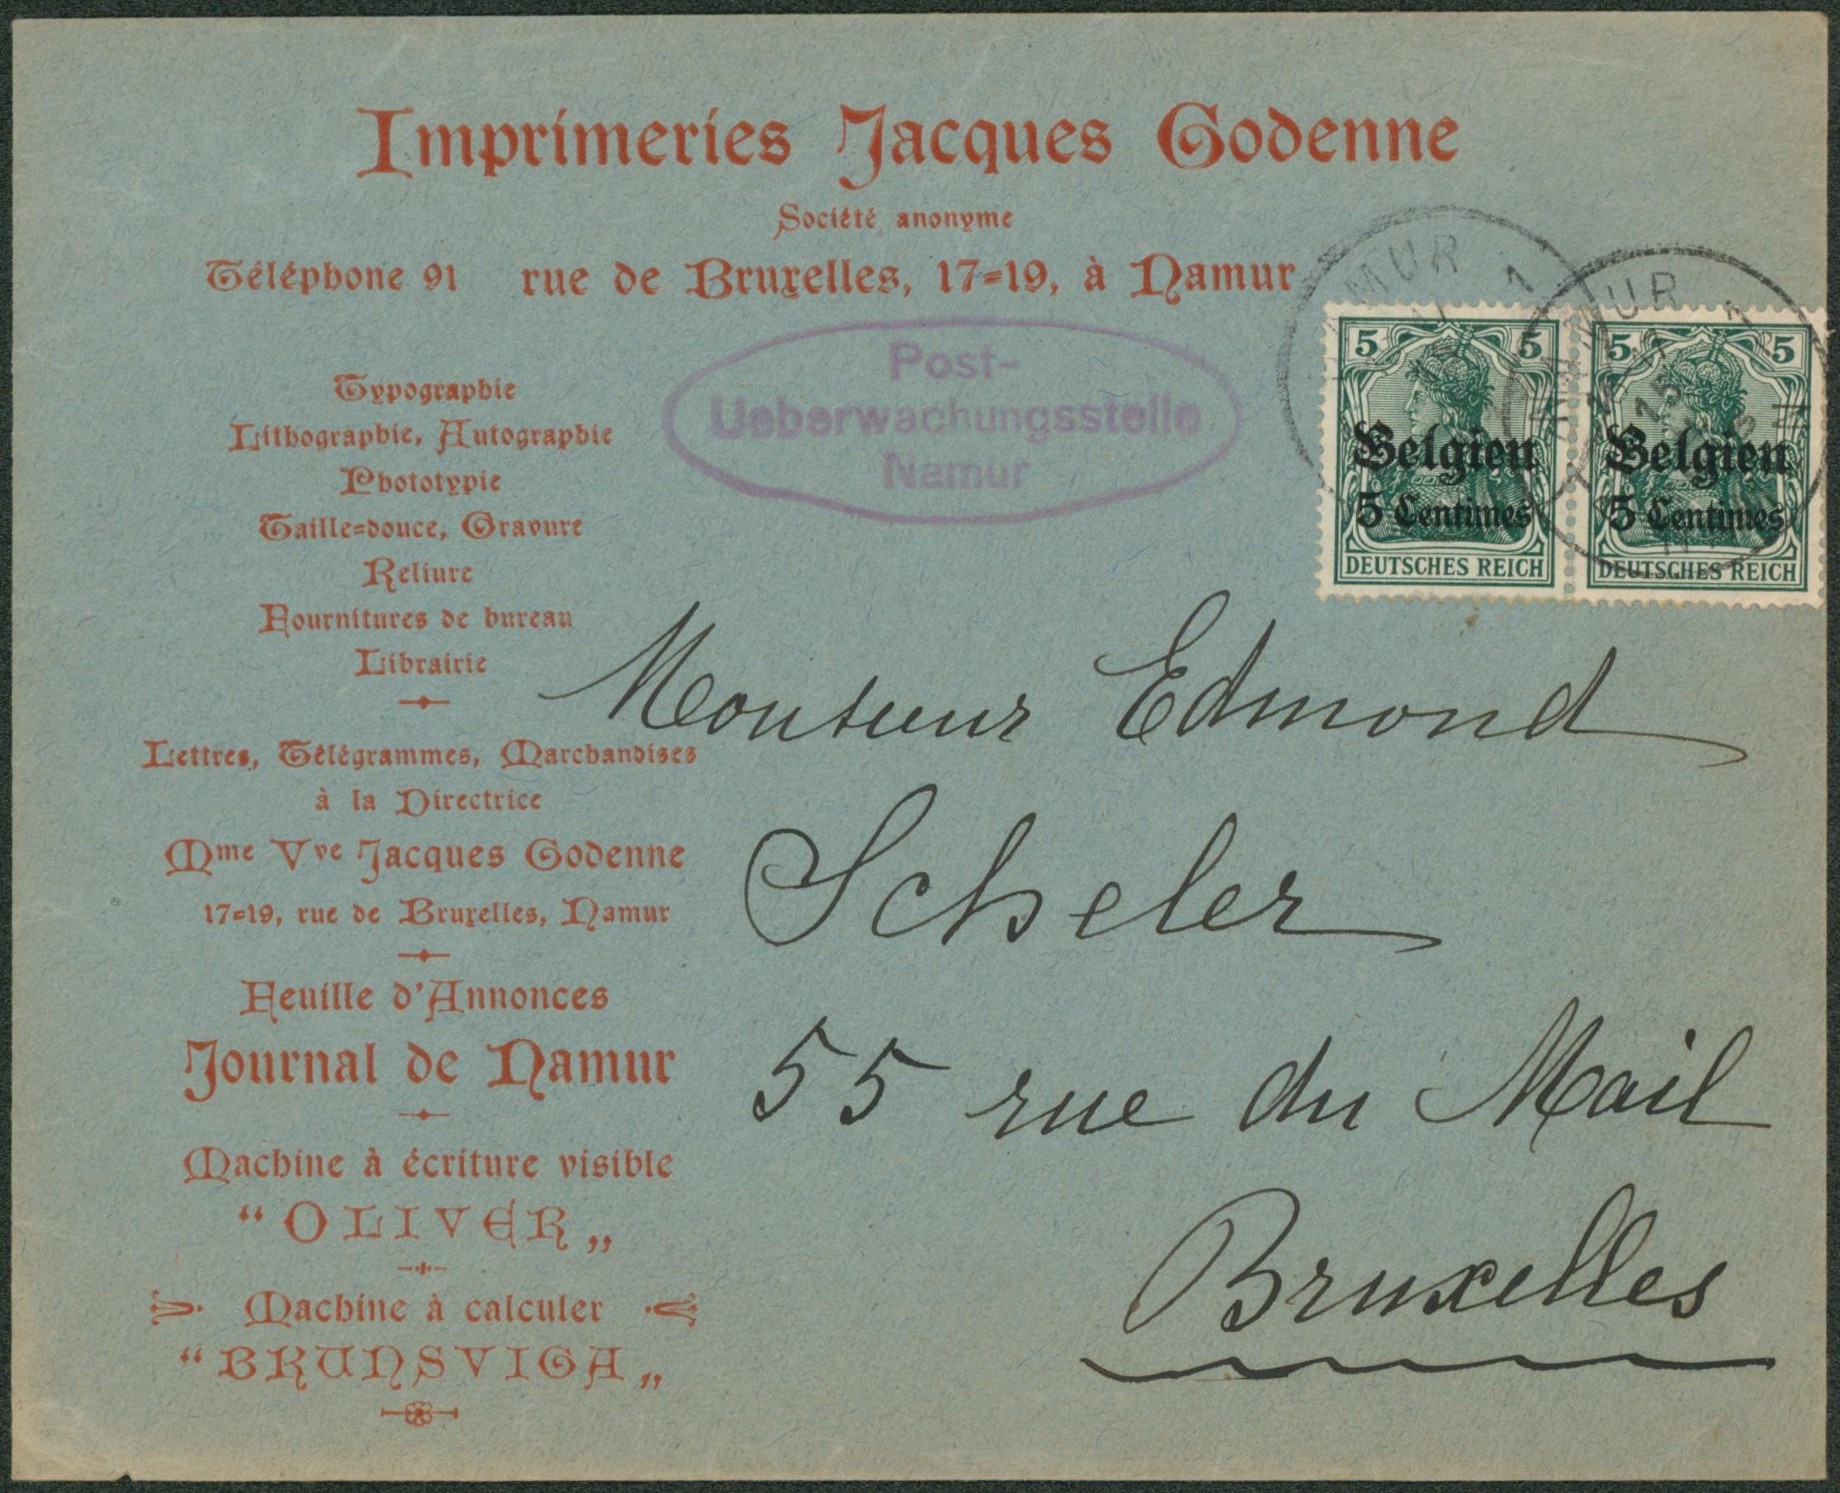 Imprimeries Jacques Godenne
Société anonyme
Téléphone 91 rue de Bruxelles, 17=19, à Namur
Post-
Ueberwachungsstelle
Namur
NAMUR 1
NAMUR 1
15
5 5
Belgien
5 Centimes
DEUTSCHES REICH
5 5
Belgien
5 Centimes
DEUTSCHES REICH
Typographie
Lithographie, Autographie
Phototypie
Taille=douce, Gravure
Reliure
Fournitures de bureau
Librairie
Lettres, Télégrammes, Marchandises
à la Directrice
Mme Vve Jacques Godenne
17=19, rue de Bruxelles, Namur
Feuille d'Annonces
Journal de Namur
Machine à écriture visible
“OLIVER„
Machine à calculer
“BRUNSVIGA„
Monsieur Edmond
Scheler
55 rue du Mail
Bruxelles